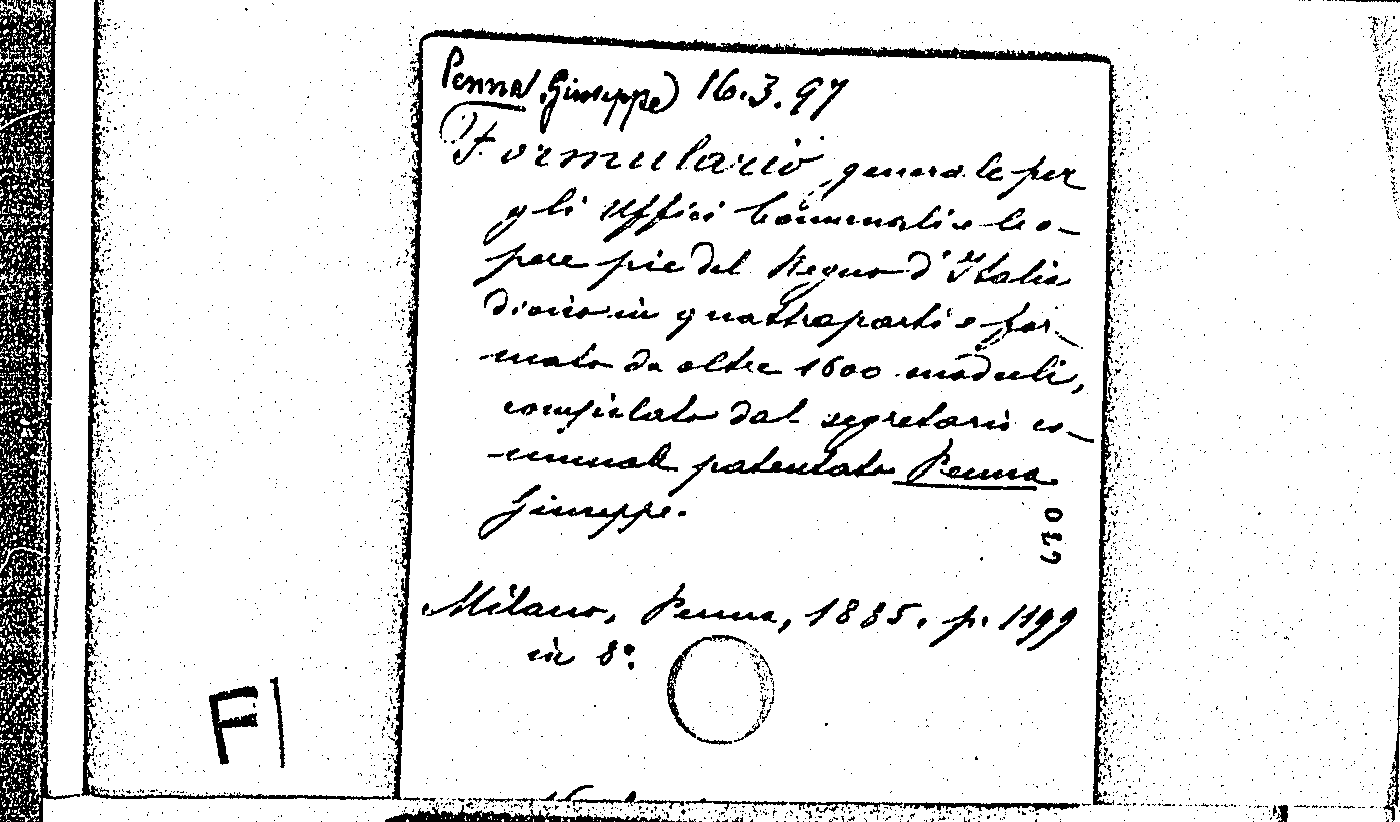 Penna Giuseppe) 16.3.97
Formulario generale per
gli Uffici Comunali e le o-
pere pie del Regno d'Italia
diviso in quattro parti e for-
mato da oltre 1600 moduli,
compilato dal segretario co-
munale patentato Penna
Giuseppe.
Milano, Penna, 1885. p. 1199
in 8°.
FI